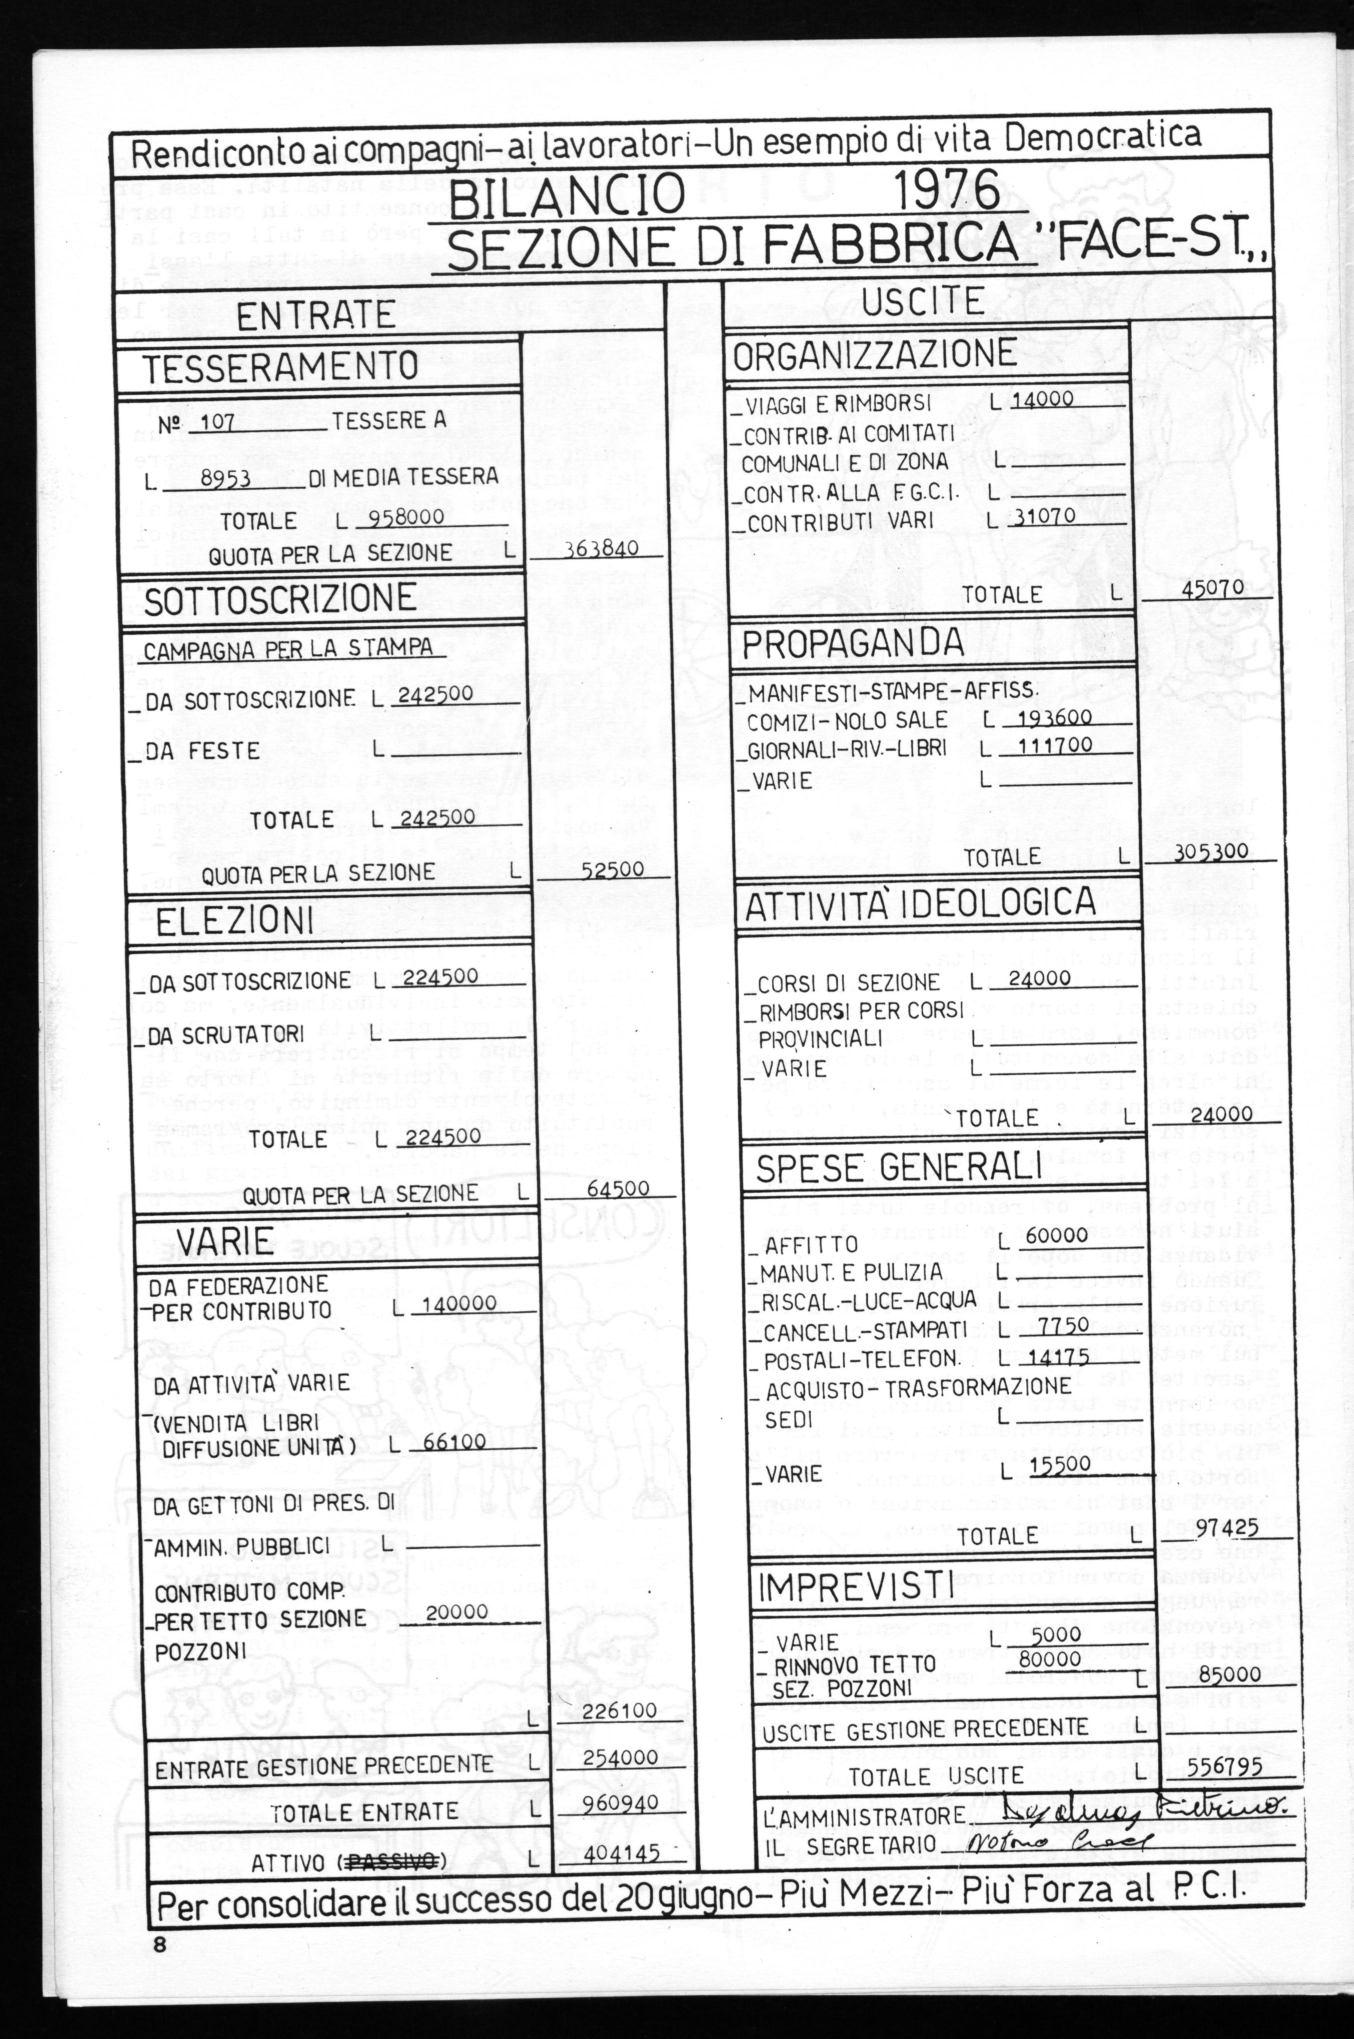 Rendiconto ai compagni-ai lavoratori-Un esempio di vita Democratica
BILANCIO 1976
SEZIONE DI FABBRICA "FACE-ST.,,
ENTRATE
TESSERAMENTO
Nº 107 TESSERE A
L 8953 DI MEDIA TESSERA
TOTALE L 958000
QUOTA PER LA SEZIONE L 363840
SOTTOSCRIZIONE
CAMPAGNA PER LA STAMPA
_DA SOTTOSCRIZIONE L 242500
_DA FESTE L
TOTALE L 242500
QUOTA PER LA SEZIONE L 52500
ELEZIONI
_DA SOTTOSCRIZIONE L 224500
_DA SCRUTATORI L
TOTALE L 224500
QUOTA PER LA SEZIONE L 64500
VARIE
DA FEDERAZIONE
-PER CONTRIBUTO L 140000
DA ATTIVITÀ VARIE
-(VENDITA LIBRI
DIFFUSIONE UNITÀ) L 66100
DA GETTONI DI PRES. DI
-AMMIN. PUBBLICI L
CONTRIBUTO COMP.
_PER TETTO SEZIONE 20000
POZZONI
L 226100
ENTRATE GESTIONE PRECEDENTE L 254000
TOTALE ENTRATE L 960940
ATTIVO (PASSIVO) L 404145
USCITE
ORGANIZZAZIONE
_VIAGGI E RIMBORSI L 14000
_CONTRIB. AI COMITATI
COMUNALI E DI ZONA L
_CONTR. ALLA F.G.C.I. L
_CONTRIBUTI VARI L 31070
TOTALE L 45070
PROPAGANDA
_MANIFESTI-STAMPE-AFFISS.
COMIZI-NOLO SALE L 193600
_GIORNALI-RIV.-LIBRI L 111700
_VARIE L
TOTALE L 305300
ATTIVITÀ IDEOLOGICA
_CORSI DI SEZIONE L 24000
_RIMBORSI PER CORSI
PROVINCIALI L
_VARIE L
TOTALE L 24000
SPESE GENERALI
_AFFITTO L 60000
_MANUT. E PULIZIA L
_RISCAL.-LUCE-ACQUA L
_CANCELL.-STAMPATI L 7750
_POSTALI-TELEFON. L 14175
_ACQUISTO-TRASFORMAZIONE
SEDI L
_VARIE L 15500
TOTALE L 97425
IMPREVISTI
_VARIE L 5000
_RINNOVO TETTO 80000
SEZ. POZZONI L 85000
USCITE GESTIONE PRECEDENTE L
TOTALE USCITE L 556795
L'AMMINISTRATORE
IL SEGRETARIO
Per consolidare il successo del 20 giugno-Più Mezzi-Più Forza al P.C.I.
8